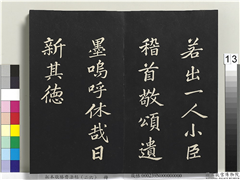 若出一人小臣
稽首敬頌遺
墨嗚呼休哉日
新其德
13